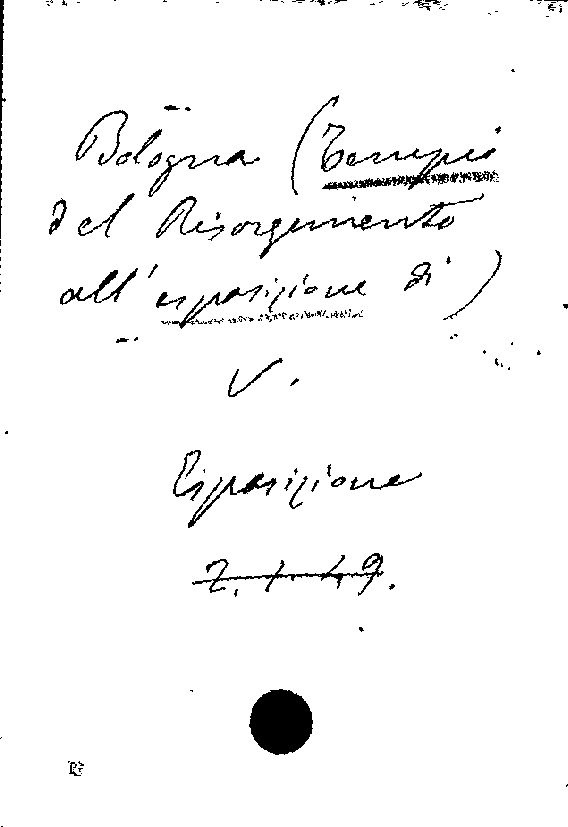 Bologna (Tempio
del Risorgimento
all'esposizione di)
V.
Esposizione
Z. I. 49.